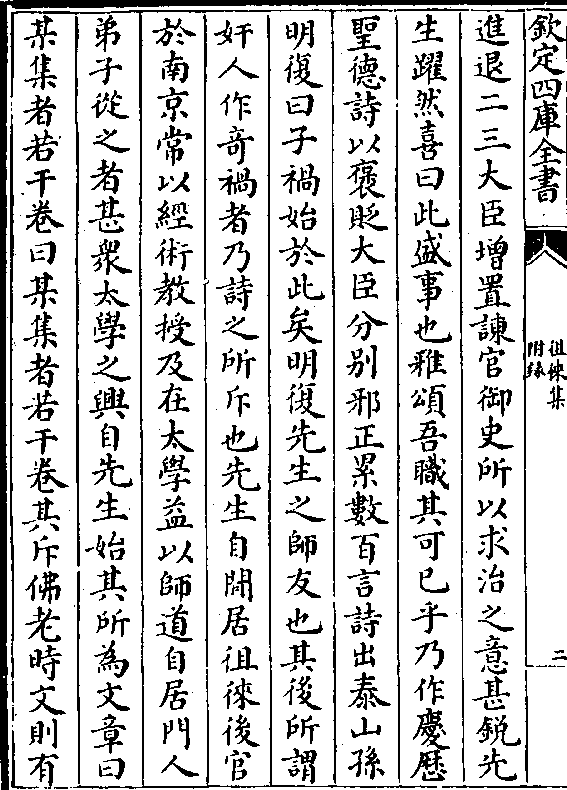 欽定四庫全書
徂徠集
附錄
二
進退二三大臣增置諫官御史所以求治之意甚銳先
生躍然喜曰此盛事也雅頌吾職其可已乎乃作慶厯
聖德詩以褒貶大臣分别邪正累數百言詩出泰山孫
明復曰子禍始於此矣明復先生之師友也其後所謂
奸人作奇禍者乃詩之所斥也先生自閒居徂徠後官
於南京常以經術教授及在太學益以師道自居門人
弟子從之者甚衆太學之興自先生始其所為文章曰
某集者若干卷曰某集者若干卷其斥佛老時文則有